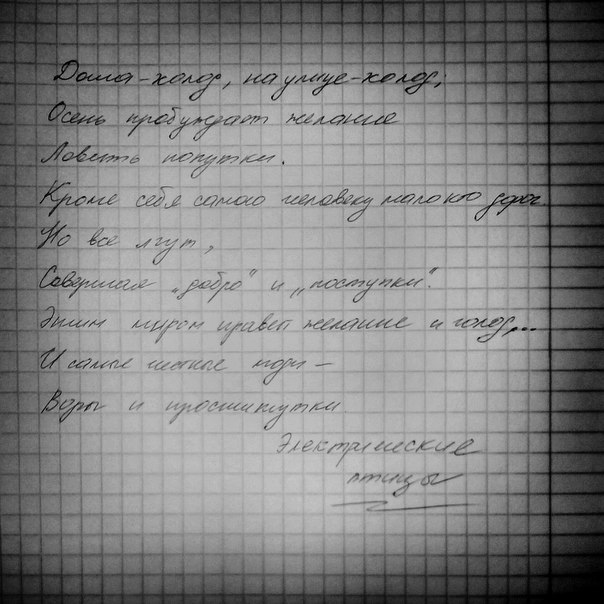 Дома-холод, на улице-холод;
Осень пробуждает желание
Ловить попутки.
Кроме себя самого человеку мало кто дорог
Но все лгут,
Совершая „добро" и „поступки".
Этим миром правет желание и голод,...
И самые честные люди -
Воры и проститутки
Электрические
птицы